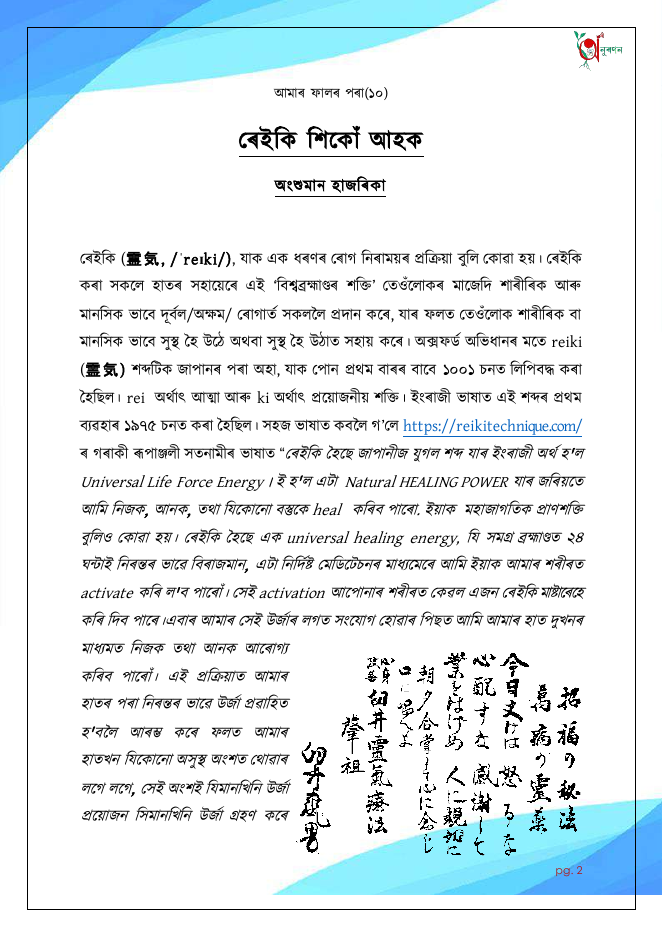 নুৰণন
আমাৰ ফালৰ পৰা(১০)
ৰেইকি শিকোঁ আহক
অংশুমান হাজৰিকা
ৰেইকি (靈気, /ˈreɪki/), যাক এক ধৰণৰ ৰোগ নিৰাময়ৰ প্ৰক্ৰিয়া বুলি কোৱা হয়। ৰেইকি
কৰা সকলে হাতৰ সহায়েৰে এই ‘বিশ্বব্ৰহ্মাণ্ডৰ শক্তি’ তেওঁলোকৰ মাজেদি শাৰীৰিক আৰু
মানসিক ভাবে দুৰ্বল/অক্ষম/ ৰোগাৰ্ত সকললৈ প্ৰদান কৰে, যাৰ ফলত তেওঁলোক শাৰীৰিক বা
মানসিক ভাবে সুস্থ হৈ উঠে অথবা সুস্থ হৈ উঠাত সহায় কৰে। অক্সফৰ্ড অভিধানৰ মতে reiki
(靈気) শব্দটিক জাপানৰ পৰা অহা, যাক পোন প্ৰথম বাৰৰ বাবে ১০০১ চনত লিপিবদ্ধ কৰা
হৈছিল। rei অৰ্থাৎ আত্মা আৰু ki অৰ্থাৎ প্ৰয়োজনীয় শক্তি। ইংৰাজী ভাষাত এই শব্দৰ প্ৰথম
ব্যৱহাৰ ১৯৭৫ চনত কৰা হৈছিল। সহজ ভাষাত কবলৈ গ’লে https://reikitechnique.com/
ৰ গৰাকী ৰূপাঞ্জলী সতনামীৰ ভাষাত “ৰেইকি হৈছে জাপানীজ যুগল শব্দ যাৰ ইংৰাজী অৰ্থ হ'ল
Universal Life Force Energy। ই হ'ল এটা Natural HEALING POWER যাৰ জৰিয়তে
আমি নিজক, আনক, তথা যিকোনো বস্তুকে heal কৰিব পাৰো. ইয়াক মহাজাগতিক প্ৰাণশক্তি
বুলিও কোৱা হয়। ৰেইকি হৈছে এক universal healing energy, যি সমগ্ৰ ব্ৰহ্মাণ্ডত ২৪
ঘন্টাই নিৰন্তৰ ভাৱে বিৰাজমান, এটা নিৰ্দিষ্ট মেডিটেচনৰ মাধ্যমেৰে আমি ইয়াক আমাৰ শৰীৰত
activate কৰি ল'ব পাৰোঁ। সেই activation আপোনাৰ শৰীৰত কেৱল এজন ৰেইকি মাষ্টাৰেহে
কৰি দিব পাৰে।এবাৰ আমাৰ সেই উৰ্জাৰ লগত সংযোগ হোৱাৰ পিছত আমি আমাৰ হাত দুখনৰ
মাধ্যমত নিজক তথা আনক আৰোগ্য
কৰিব পাৰোঁ। এই প্ৰক্ৰিয়াত আমাৰ
হাতৰ পৰা নিৰন্তৰ ভাৱে উৰ্জা প্ৰৱাহিত
হ'বলৈ আৰম্ভ কৰে ফলত আমাৰ
হাতখন যিকোনো অসুস্থ অংশত থোৱাৰ
লগে লগে, সেই অংশই যিমানখিনি উৰ্জা
প্ৰয়োজন সিমানখিনি উৰ্জা গ্ৰহণ কৰে
招福の秘法
萬病の靈薬
今日丈けは怒るな
心配すな感謝して
業をはげめ人に親切に
朝夕合掌して心に念じ
口に唱へよ
心身改善臼井靈氣療法
肇祖
臼井甕男
pg. 2